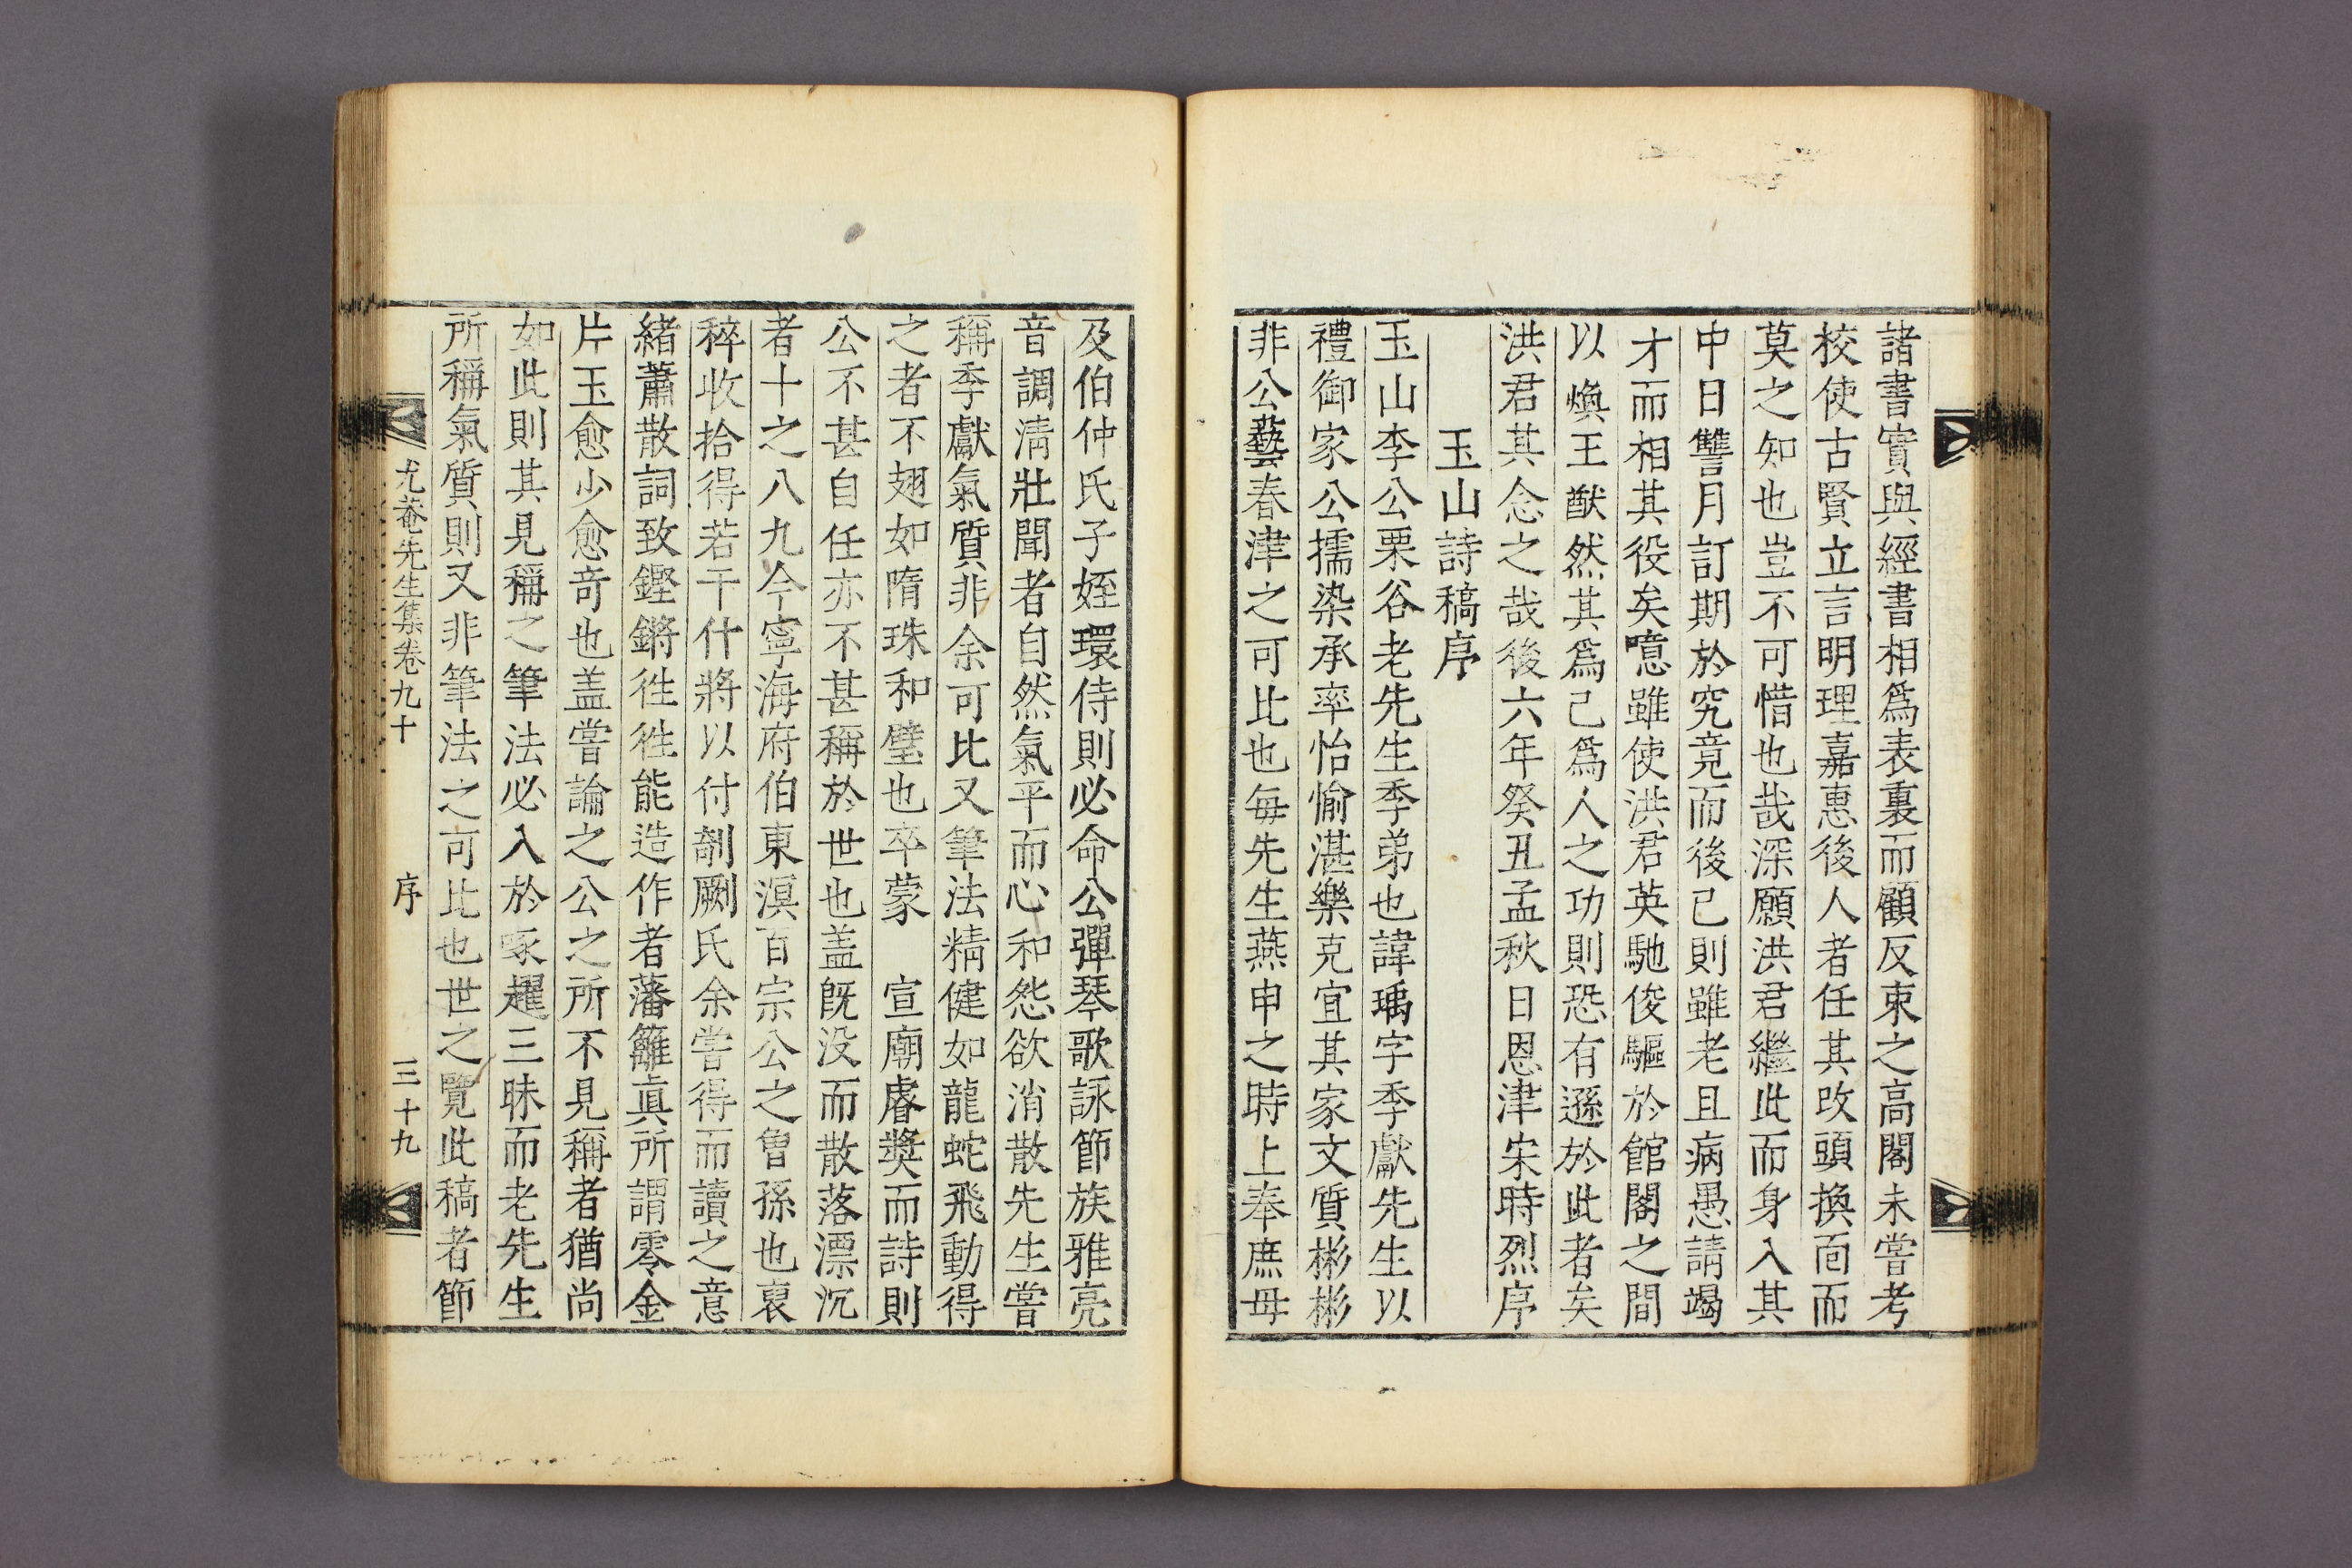 諸書實與經書相爲表裏而顧反束之高閣未嘗考
校使古賢立言明理嘉惠後人者任其改頭換面而
莫之知也豈不可惜也哉深願洪君繼此而身入其
中日讐月訂期於究竟而後已則雖老且病愚請竭
才而相其役矣噫雖使洪君英馳俊驅於館閣之間
以煥王猷然其爲己爲人之功則恐有遜於此者矣
洪君其念之哉後六年癸丑孟秋日恩津宋時烈序
玉山詩稿序
玉山李公栗谷老先生季弟也諱瑀字季獻先生以
禮御家公擩染承率怡愉湛樂克宜其家文質彬彬
非公藝春津之可比也每先生燕申之時上奉庶母
及伯仲氏子姪環侍則必命公彈琴歌詠節族雅亮
音調淸壯聞者自然氣平而心和忿欲消散先生嘗
稱季獻氣質非余可比又筆法精健如龍蛇飛動得
之者不翅如隋珠和璧也卒蒙 宣廟睿奬而詩則
公不甚自任亦不甚稱於世也盖旣没而散落漂沉
者十之八九今寧海府伯東溟百宗公之曾孫也裒
稡收拾得若干什將以付剞劂氏余嘗得而讀之意
緖蕭散詞致鏗鏘徃徃能造作者藩籬眞所謂零金
片玉愈少愈奇也盖嘗論之公之所不見稱者猶尙
如此則其見稱之筆法必入於啄趯三昧而老先生
所稱氣質則又非筆法之可比也世之覽此稿者節
尤菴先生集卷九十 序 三十九